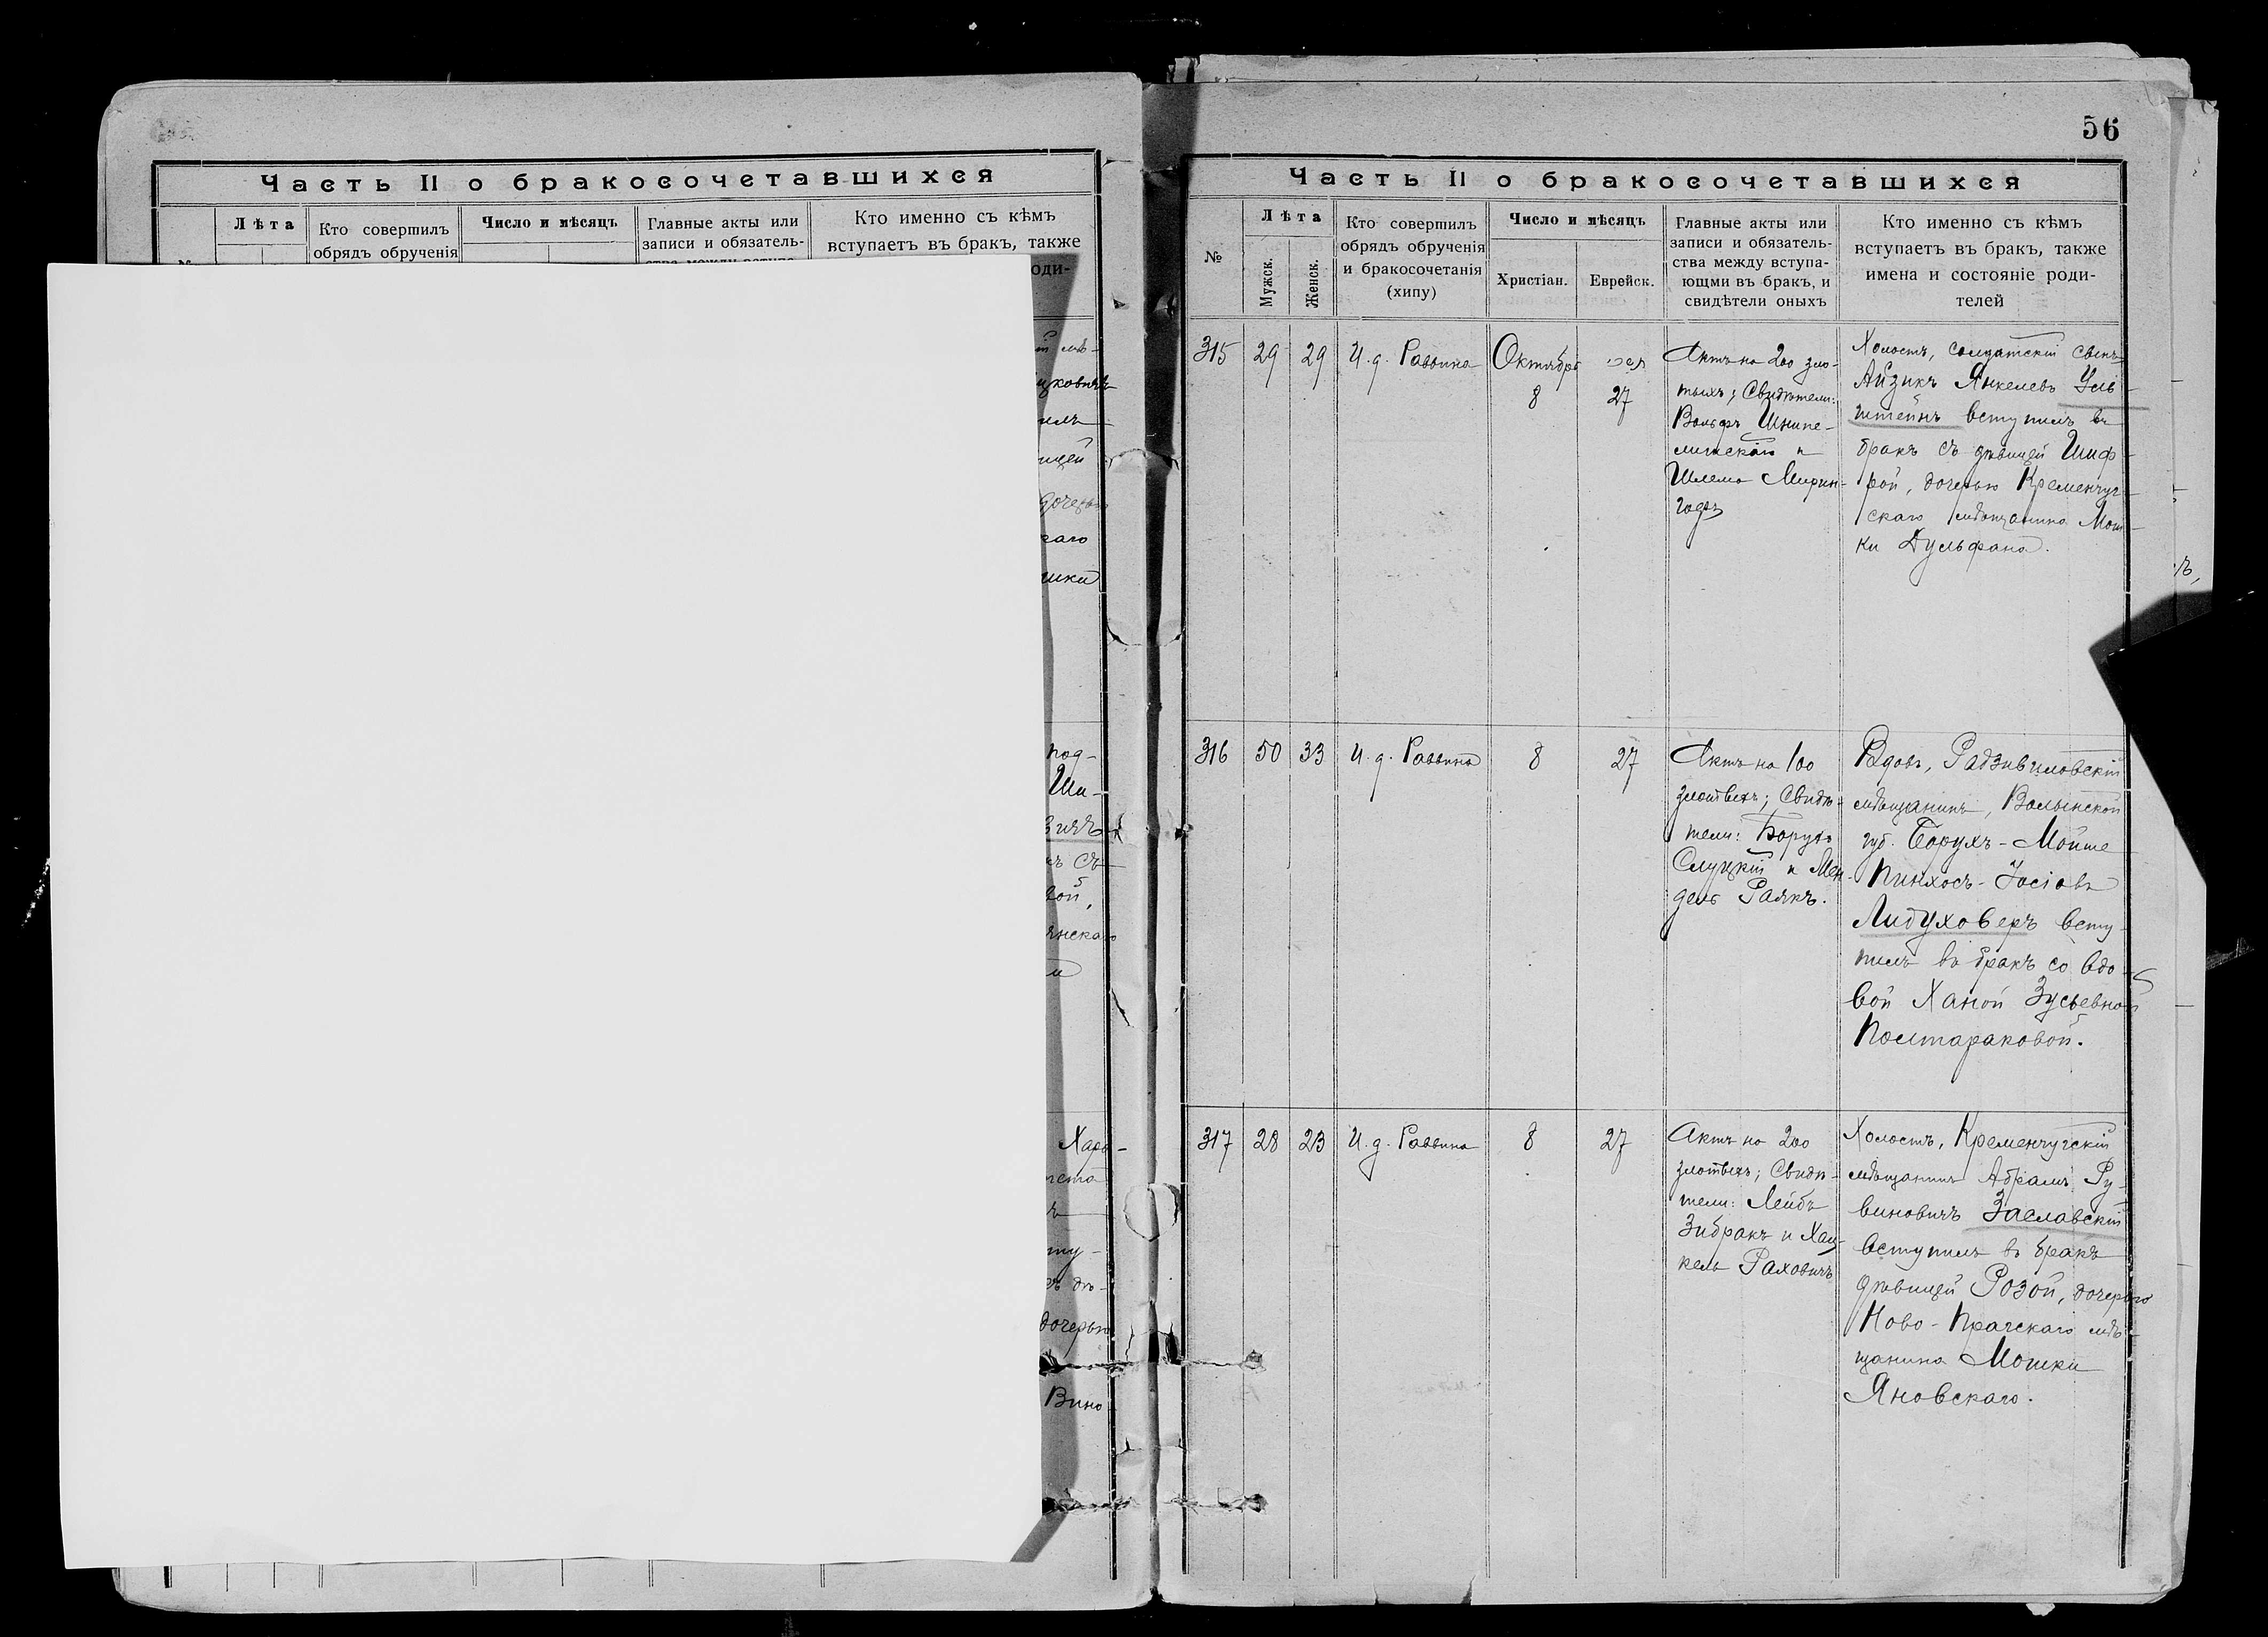 56
Часть II о бракосочетавшихся
Лѣта
Кто совершилъ
обрядъ обрученія
Число и мѣсяцъ
Главные акты или
записи и обязатель-
Кто именно съ кѣмъ
вступаетъ въ бракъ, также
Часть II о бракосочетавшихся
№
Лѣта
Мужск.
Женск.
Кто совершилъ
обрядъ обрученія
и бракосочетанія
(хипу)
Число и мѣсяцъ
Христіан.
Еврейск.
Главные акты или
записи и обязатель-
ства между вступа-
ющми въ бракъ, и
свидѣтели оныхъ
Кто именно съ кѣмъ
вступаетъ въ бракъ, также
имена и состояніе роди-
телей
315
29
29
И. д. Раввина
Октября
8
27
Актъ на 200 зло-
тыхъ; Свидѣтели:
Вольфъ
и
Шлема Мирин-
годъ
Холостъ, солдатскій сынъ
Айзикъ Янкелевъ
штейнъ вступилъ въ
бракъ съ дѣвицей Шиф-
рой, дочерью Кременчуг-
скаго мѣщанина Мош-
ки Дульфана.
316
50
33
И. д. Раввина
8
27
Актъ на 100
злотыхъ; Свидѣ-
тели: Борухъ
Слуцкій и Мен-
дель Раякъ.
Вдовъ, Радзивиловскій
мѣщанинъ, Волынской
губ. Борухъ-Мойше
Пинхосъ-Іосіовъ
Лидуховеръ всту-
пилъ въ бракъ со вдо-
вой Ханой Зусьевной
Полтараковой.
317
28
23
И. д. Раввина
8
27
Актъ на 200
злотыхъ; Свидѣ-
тели: Лейбъ
Зибракъ и Хац-
кель Раховичъ
Холостъ, Кременчугскій
мѣщанинъ Абрамъ Ру-
виновичъ Заславскій
вступилъ въ бракъ
дѣвицей Розой, дочерью
Ново-Прагскаго мѣ-
щанина Мошки
Яновскаго.